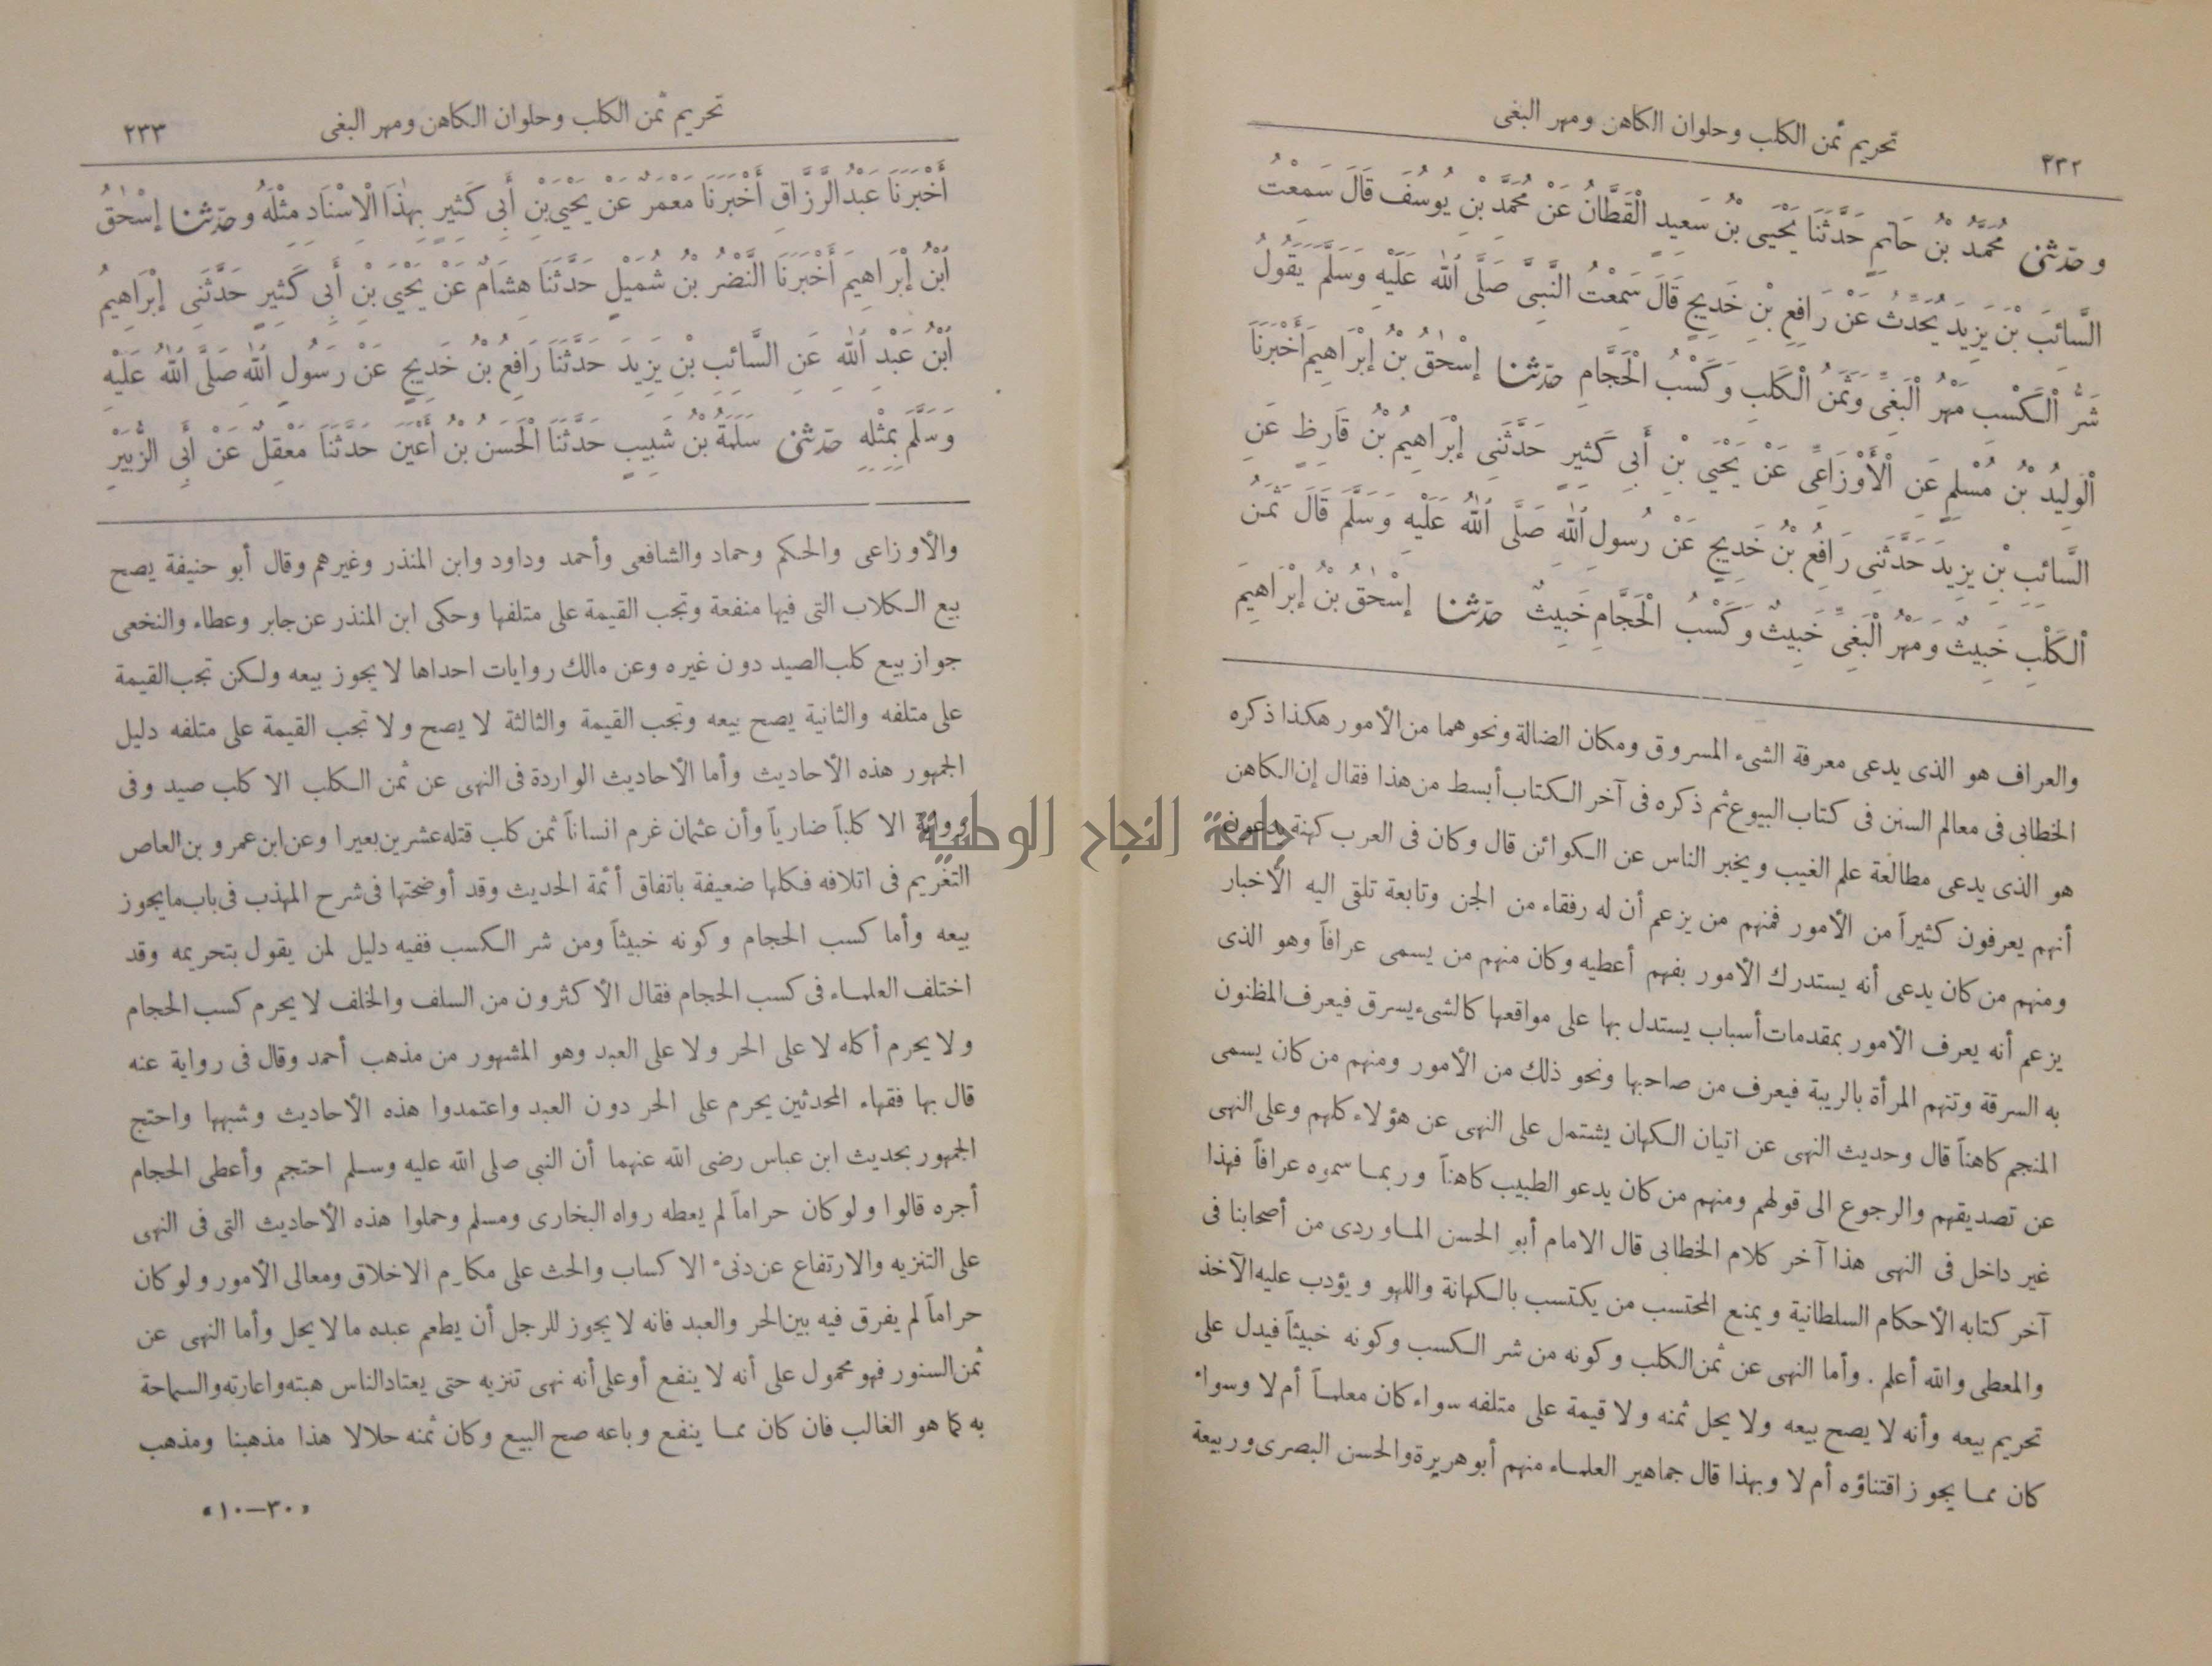 تحريم ثمن الكلب وحلوان الكاهن ومهر البغى
٢٣٢
وحَدَّثَنِى مُحَمَّدُ بْنُ حَاتِمٍ حَدَّثَنَا يَحْيَى بْنُ سَعِيدٍ الْقَطَّانُ عَنْ مُحَمَّدِ بْنِ يُوسُفَ قَالَ سَمِعْتُ
السَّائِبَ بْنَ يَزِيدَ يُحَدِّثُ عَنْ رَافِعِ بْنِ خَدِيجٍ قَالَ سَمِعْتُ النَّبِىَّ صَلَّى اللهُ عَلَيْهِ وَسَلَّمَ يَقُولُ
شَرُّ الْكَسْبِ مَهْرُ الْبَغِىِّ وَثَمَنُ الْكَلْبِ وَكَسْبُ الْحَجَّامِ حَدَّثَنَا إِسْحٰقُ بْنُ إِبْرَاهِيمَ أَخْبَرَنَا
الْوَلِيدُ بْنُ مُسْلِمٍ عَنِ الْأَوْزَاعِىِّ عَنْ يَحْيَى بْنِ أَبِى كَثِيرٍ حَدَّثَنِى إِبْرَاهِيمُ بْنُ قَارِظٍ عَنِ
السَّائِبِ بْنِ يَزِيدَ حَدَّثَنِى رَافِعُ بْنُ خَدِيجٍ عَنْ رَسُولِ اللهِ صَلَّى اللهُ عَلَيْهِ وَسَلَّمَ قَالَ ثَمَنُ
الْكَلْبِ خَبِيثٌ وَمَهْرُ الْبَغِىِّ خَبِيثٌ وَكَسْبُ الْحَجَّامِ خَبِيثٌ حَدَّثَنَا إِسْحٰقُ بْنُ إِبْرَاهِيمَ
والعراف هو الذى يدعى معرفة الشىء المسروق ومكان الضالة ونحوهما من الأمور هكذا ذكره
الخطابى فى معالم السنن فى كتاب البيوع ثم ذكره فى آخر الكتاب أبسط من هذا فقال إن الكاهن
هو الذى يدعى مطالعة علم الغيب ويخبر الناس عن الكوائن قال وكان فى العرب كهنة يدعون
أنهم يعرفون كثيراً من الأمور فمنهم من يزعم أن له رفقاء من الجن وتابعة تلقى اليه الأخبار
ومنهم من كان يدعى أنه يستدرك الأمور بفهم أعطيه وكان منهم من يسمى عرافاً وهو الذى
يزعم أنه يعرف الأمور بمقدمات أسباب يستدل بها على مواقعها كالشىء يسرق فيعرف المظنون
به السرقة وتتهم المرأة بالريبة فيعرف من صاحبها ونحو ذلك من الأمور ومنهم من كان يسمى
المنجم كاهناً قال وحديث النهى عن اتيان الكهان يشتمل على النهى عن هؤلاء كلهم وعلى النهى
عن تصديقهم والرجوع الى قولهم ومنهم من كان يدعو الطبيب كاهناً وربما سموه عرافاً فهذا
غير داخل فى النهى هذا آخر كلام الخطابى قال الامام أبو الحسن الماوردى من أصحابنا فى
آخر كتابه الأحكام السلطانية ويمنع المحتسب من يكتسب بالكهانة واللهو ويؤدب عليه الآخذ
والمعطى والله أعلم . وأما النهى عن ثمن الكلب وكونه من شر الكسب وكونه خبيثاً فيدل على
تحريم بيعه وأنه لا يصح بيعه ولا يحل ثمنه ولا قيمة على متلفه سواء كان معلماً أم لا وسواء
كان مما يجوز اقتناؤه أم لا وبهذا قال جماهير العلماء منهم أبو هريرة والحسن البصرى وربيعة
تحريم ثمن الكلب وحلوان الكاهن ومهر البغى
٢٣٣
أَخْبَرَنَا عَبْدُ الرَّزَّاقِ أَخْبَرَنَا مَعْمَرٌ عَنْ يَحْيَى بْنِ أَبِى كَثِيرٍ بِهٰذَا الْإِسْنَادِ مِثْلَهُ وحَدَّثَنَا إِسْحٰقُ
ابْنُ إِبْرَاهِيمَ أَخْبَرَنَا النَّضْرُ بْنُ شُمَيْلٍ حَدَّثَنَا هِشَامٌ عَنْ يَحْيَى بْنِ أَبِى كَثِيرٍ حَدَّثَنِى إِبْرَاهِيمُ
ابْنُ عَبْدِ اللهِ عَنِ السَّائِبِ بْنِ يَزِيدَ حَدَّثَنَا رَافِعُ بْنُ خَدِيجٍ عَنْ رَسُولِ اللهِ صَلَّى اللهُ عَلَيْهِ
وَسَلَّمَ بِمِثْلِهِ حَدَّثَنِى سَلَمَةُ بْنُ شَبِيبٍ حَدَّثَنَا الْحَسَنُ بْنُ أَعْيَنَ حَدَّثَنَا مَعْقِلٌ عَنْ أَبِى الزُّبَيْرِ
والأوزاعى والحكم وحماد والشافعى وأحمد وداود وابن المنذر وغيرهم وقال أبو حنيفة يصح
بيع الكلاب التى فيها منفعة وتجب القيمة على متلفها وحكى ابن المنذر عن جابر وعطاء والنخعى
جواز بيع كلب الصيد دون غيره وعن مالك روايات احداها لا يجوز بيعه ولكن تجب القيمة
على متلفه والثانية يصح بيعه وتجب القيمة والثالثة لا يصح ولا تجب القيمة على متلفه دليل
الجمهور هذه الأحاديث وأما الأحاديث الواردة فى النهى عن ثمن الكلب الا كلب صيد وفى
رواية الا كلباً ضارياً وأن عثمان غرم انساناً ثمن كلب قتله عشرين بعيرا وعن ابن عمرو بن العاص
التغريم فى اتلافه فكلها ضعيفة باتفاق أئمة الحديث وقد أوضحتها فى شرح المهذب فى باب ما يجوز
بيعه وأما كسب الحجام وكونه خبيثاً ومن شر الكسب ففيه دليل لمن يقول بتحريمه وقد
اختلف العلماء فى كسب الحجام فقال الأكثرون من السلف والخلف لا يحرم كسب الحجام
ولا يحرم أكله لا على الحر ولا على العبد وهو المشهور من مذهب أحمد وقال فى رواية عنه
قال بها فقهاء المحدثين يحرم على الحر دون العبد واعتمدوا هذه الأحاديث وشبهها واحتج
الجمهور بحديث ابن عباس رضى الله عنهما أن النبى صلى الله عليه وسلم احتجم وأعطى الحجام
أجره قالوا ولو كان حراماً لم يعطه رواه البخارى ومسلم وحملوا هذه الأحاديث التى فى النهى
على التنزيه والارتفاع عن دنىء الاكساب والحث على مكارم الاخلاق ومعالى الأمور ولو كان
حراماً لم يفرق فيه بين الحر والعبد فانه لا يجوز للرجل أن يطعم عبده ما لا يحل وأما النهى عن
ثمن السنور فهو محمول على أنه لا ينفع أو على أنه نهى تنزيه حتى يعتاد الناس هبته واعارته والسماحة
به كما هو الغالب فان كان مما ينفع وباعه صح البيع وكان ثمنه حلالا هذا مذهبنا ومذهب
«٣٠—١٠»
جامعة النجاح الوطنية